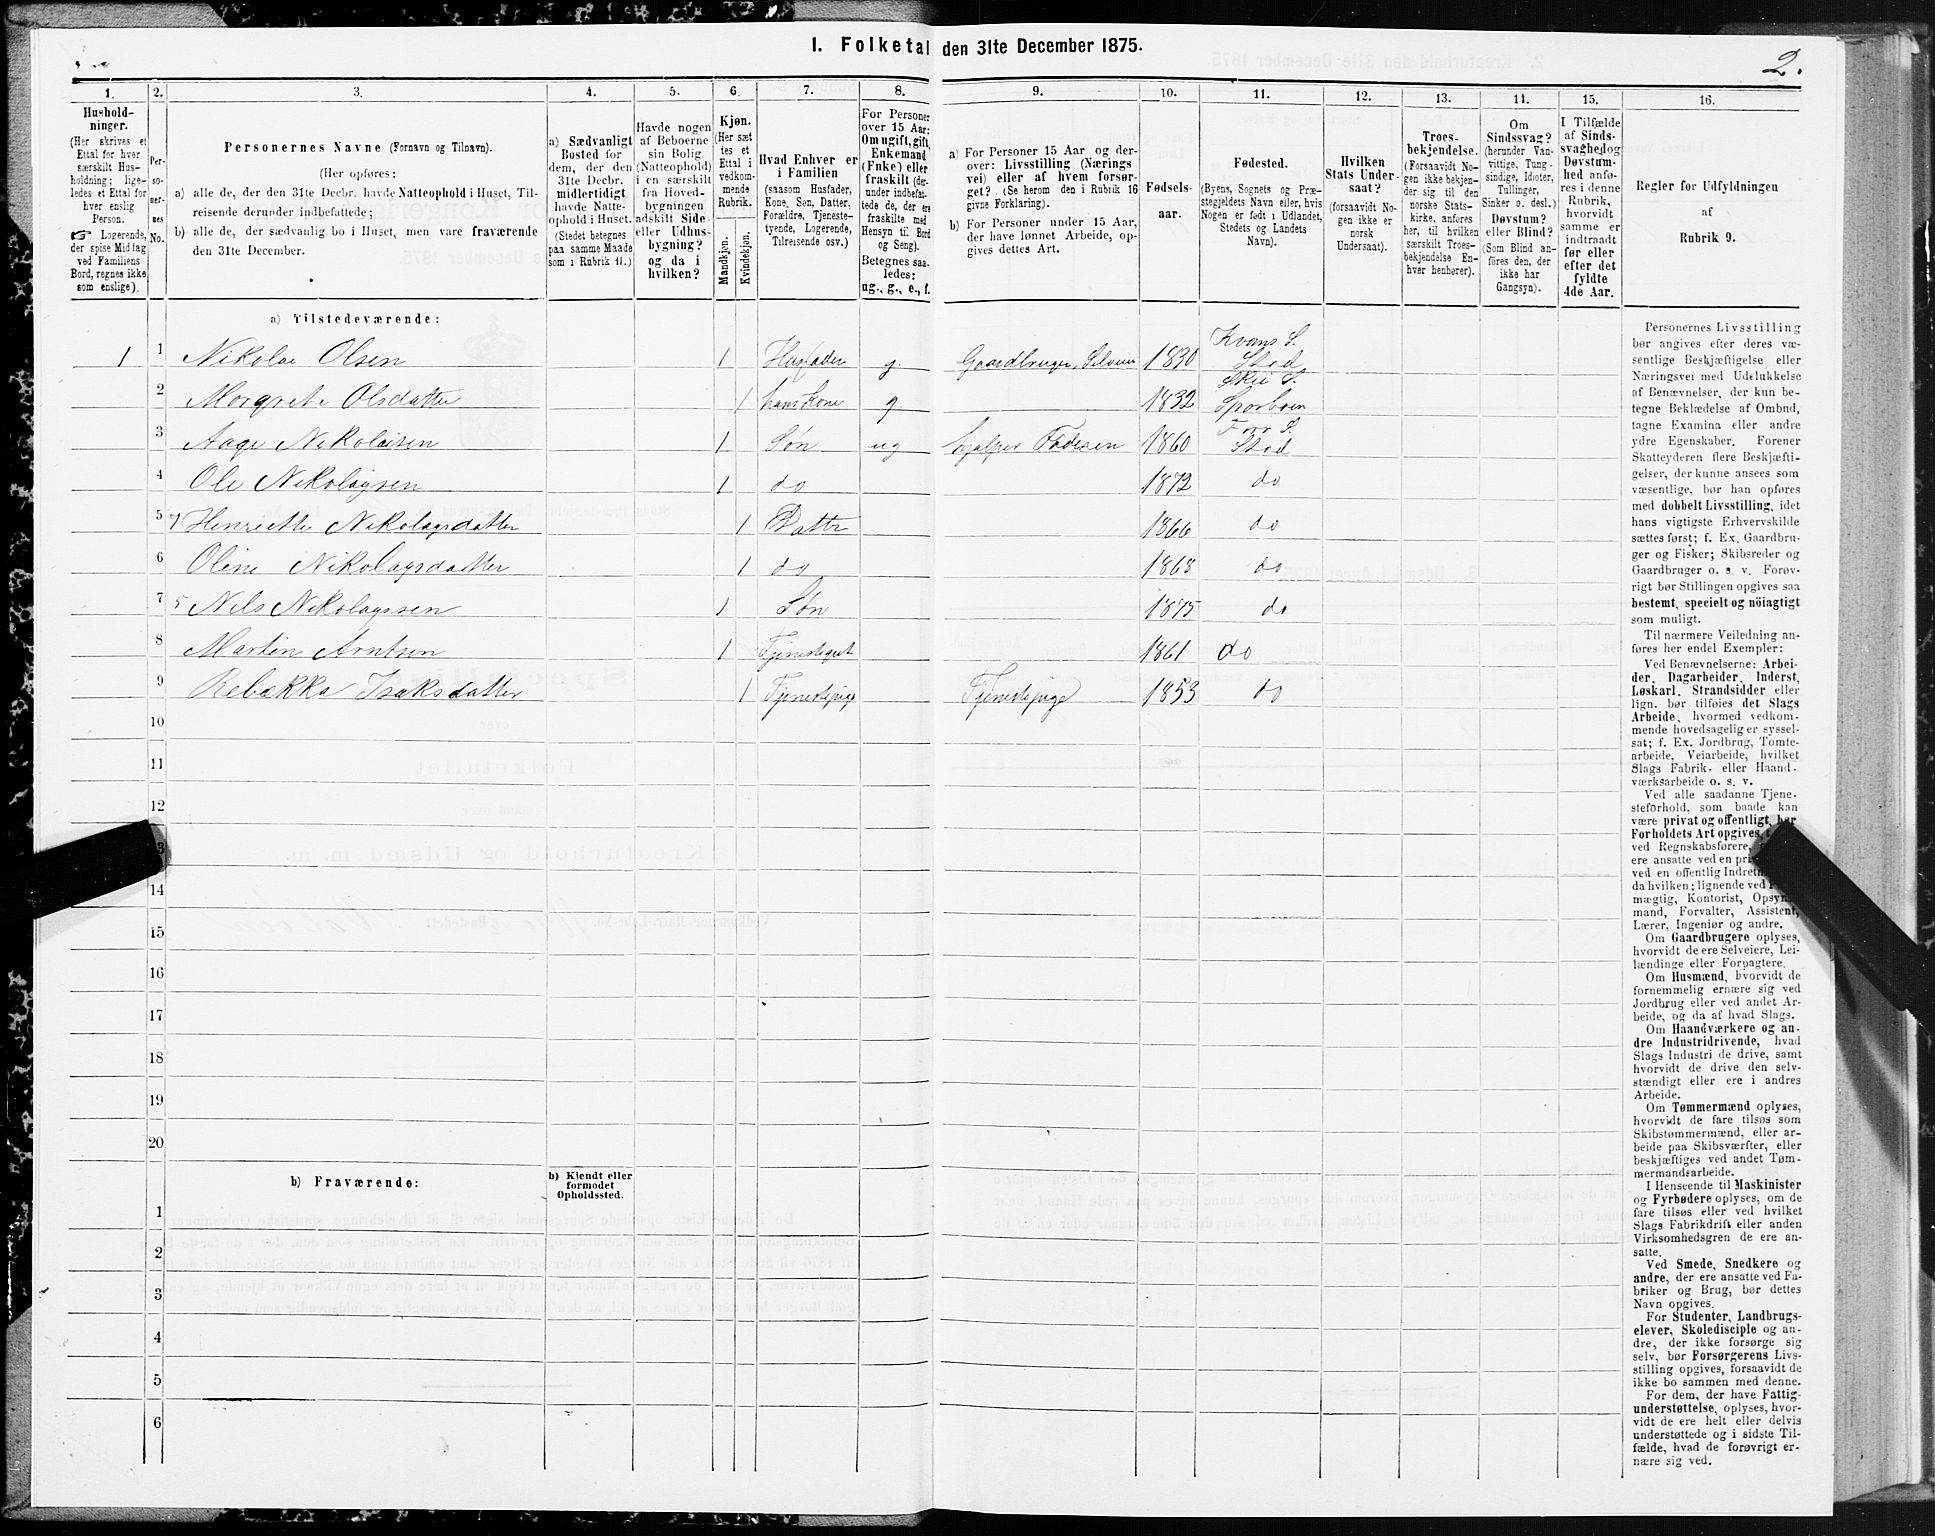 I. Folketal den 31te December 1875.
2.
1.
Hushold-
ninger.
(Her skrives et
Ettal for hver
særskilt Hus-
holdning; lige-
ledes et Ettal for
hver enslig
Person.
☞ Logerende,
der spise Middag
ved Familiens
Bord, regnes ikke
som enslige).
2.
Per-
so-
ner-
nes
No.
3.
Personernes Navne (Fornavn og Tilnavn).
(Her opføres:
a) alle de, der den 31te Decbr. havde Natteophold i Huset, Til-
reisende derunder indbefattede;
b) alle de, der sædvanlig bo i Huset, men vare fraværende
den 31te December.
4.
a) Sædvanligt
Bosted for
dem, der den
31te Decbr.
midlertidigt
havde Natte-
ophold i Huset.
(Stedet betegnes
paa samme Maade
som i Rubrik 11.)
5.
Havde nogen
af Beboerne
sin Bolig
(Natteophold)
i en særskilt
fra Hoved-
bygningen
adskilt Side-
eller Udhus-
bygning?
og da i
hvilken?
6.
Kjøn.
(Her sæt
tes et
Ettal i
vedkom-
mende
Rubrik.
Mandkjøn.
Kvindekjøn.
7.
Hvad Enhver er
i Familien
(saasom Husfader,
Kone, Søn, Datter,
Forældre, Tjeneste-
tyende, Logerende,
Tilreisende osv.)
8.
For Personer
over 15 Aar:
Om ugift, gift,
Enkemand
(Enke) eller
fraskilt (der-
under indbefat-
tede de, der ere
fraskilte med
Hensyn til Bord
og Seng).
Betegnes saa-
ledes:
ug., g., e., f.
9.
a) For Personer 15 Aar og der-
over: Livsstilling (Nærings
vei) eller af hvem forsør-
get? (Se herom den i Rubrik 16
givne Forklaring).
b) For Personer under 15 Aar,
der have lønnet Arbeide, op-
gives dettes Art.
10.
Fødsels-
aar.
11.
Fødested.
(Byens, Sognets og Præ-
stegjeldets Navn eller, hvis
Nogen er født i Udlandet,
Stedets og Landets
Navn).
12.
Hvilken
Stats Under-
saat?
(forsaavidt No-
gen ikke er
norsk
Undersaat).
13.
Troes-
bekjendelse.
(Forsaavidt No-
gen ikke bekjen-
der sig til den
norske Stats-
kirke, anføres
her, til hvilken
særskilt Troes-
bekjendelse En-
hver henhører).
14.
Om
Sindssvag?
(herunder Van-
vittige, Tung-
sindige, Idioter,
Tullinger,
Sinker o. desl.)
Døvstum?
eller Blind?
(Som Blind an-
føres den, der
ikke har
Gangsyn).
15.
I Tilfælde
af Sinds-
svaghed og
Døvstum-
hed anfø-
res i denne
Rubrik,
hvorvidt
samme er
indtraadt
før eller
efter det
fyldte
4de Aar.
16.
Regler for Udfyldningen
af
Rubrik 9.
a) Tilstedeværende:
1 1 Nikolai Olsen 1 Husfader g. Gaardbruger, Selveier 1830 Kvams S. Stod
2 Margrete Olsdatter 1 hans Kone g. 1832 Skei S. Sparboen
3 Aage Nikolaisen 1 Søn ug hjelper Faderen 1860 For S. Stod
4 Ole Nikolaysen 1 do 1872 do
5 7 Henriette Nikolaysdatter 1 Datter 1866 do
6 Oline Nikolaysdatter 1 do 1863 do
7 5 Nils Nikolayssen 1 Søn 1875 do
8 Martin Arntsen 1 Tjenestegut 1861 do
9 Rebækka Isaksdatter 1 Tjenestepige Tjenestepige 1853 do
10
11
12
13
14
15
16
17
18
19
20
b) Fraværende:
b) Kjendt eller
formodet
Opholdssted.
1
2
3
4
5
6
Personernes Livsstilling
bør angives efter deres væ-
sentlige Beskjæftigelse eller
Næringsvei med Udelukkelse
af Benævnelser, der kun be-
tegne Beklædelse af Ombud,
tagne Examina eller andre
ydre Egenskaber. Forener
Skatteyderen flere Beskjæfti-
gelser, der kunne ansees som
væsentlige, bør han opføres
med dobbelt Livsstilling, idet
hans vigtigste Erhvervskilde
sættes først; f. Ex. Gaardbru-
ger og Fisker; Skibsreder og
Gaardbruger o. s. v. Forøv-
rigt bør Stillingen opgives saa
bestemt, specielt og nöiagtigt
som muligt.
Til nærmere Veiledning an-
føres her endel Exempler:
Ved Benævnelserne: Arbei-
der, Dagarbeider, Inderst,
Løskarl, Strandsidder eller
lign. bør tilføies det Slags
Arbeide, hvormed vedkom-
mende hovedsagelig er syssel-
sat; f. Ex. Jordbrug, Tomte-
arbeide, Veiarbeide, hvilket
Slags Fabrik- eller Haand-
værksarbeide o. s. v.
Ved alle saadanne Tjene-
steforhold, som baade kan
være privat og offentlig, bør
Forholdets Art opgives,
ved Regnskabsførere,
ere ansatte ved en
ved en offentlig
da hvilken; lignende ved
mægtig, Kontorist,
mand, Forvalter, Assistent,
Lærer, Ingeniør og andre.
Om Gaardbrugere oplyses,
hvorvidt de ere Selveiere, Lei-
lændinge eller Forpagtere.
Om Husmænd, hvorvidt de
fornemmelig ernære sig ved
Jordbrug eller ved andet Ar-
beide, og da af hvad Slags.
Om Haandværkere og an-
dre Industridrivende, hvad
Slags Industri de drive, samt
hvorvidt de drive den selv-
stændigt eller ere i andres
Arbeide.
Om Tømmermænd oplyses,
hvorvidt de fare tilsøs som
Skibstømmermænd, eller ar-
beide paa Skibsværfter, eller
beskjæftiges ved andet Tøm-
mermandsarbeide.
I Henseende til Maskinister
og Fyrbødere oplyses, om de
fare tilsøs eller ved hvilket
Slags Fabrikdrift eller anden
Virksomhedsgren de ere an-
satte.
Ved Smede, Snedkere og
andre, der ere ansatte ved Fa-
briker og Brug, bør dettes
Navn opgives.
For Studenter, Landbrugs-
elever, Skoledisciple og an-
dre, der ikke forsørge sig
selv, bør Forsørgerens Livs-
stilling opgives, forsaavidt de
ikke bo sammen med denne.
For dem, der have Fattig-
understøttelse, oplyses, hvor-
vidt de ere helt eller delvis
understøttede og i sidste Til-
fælde, hvad de forøvrigt er-
nære sig ved.